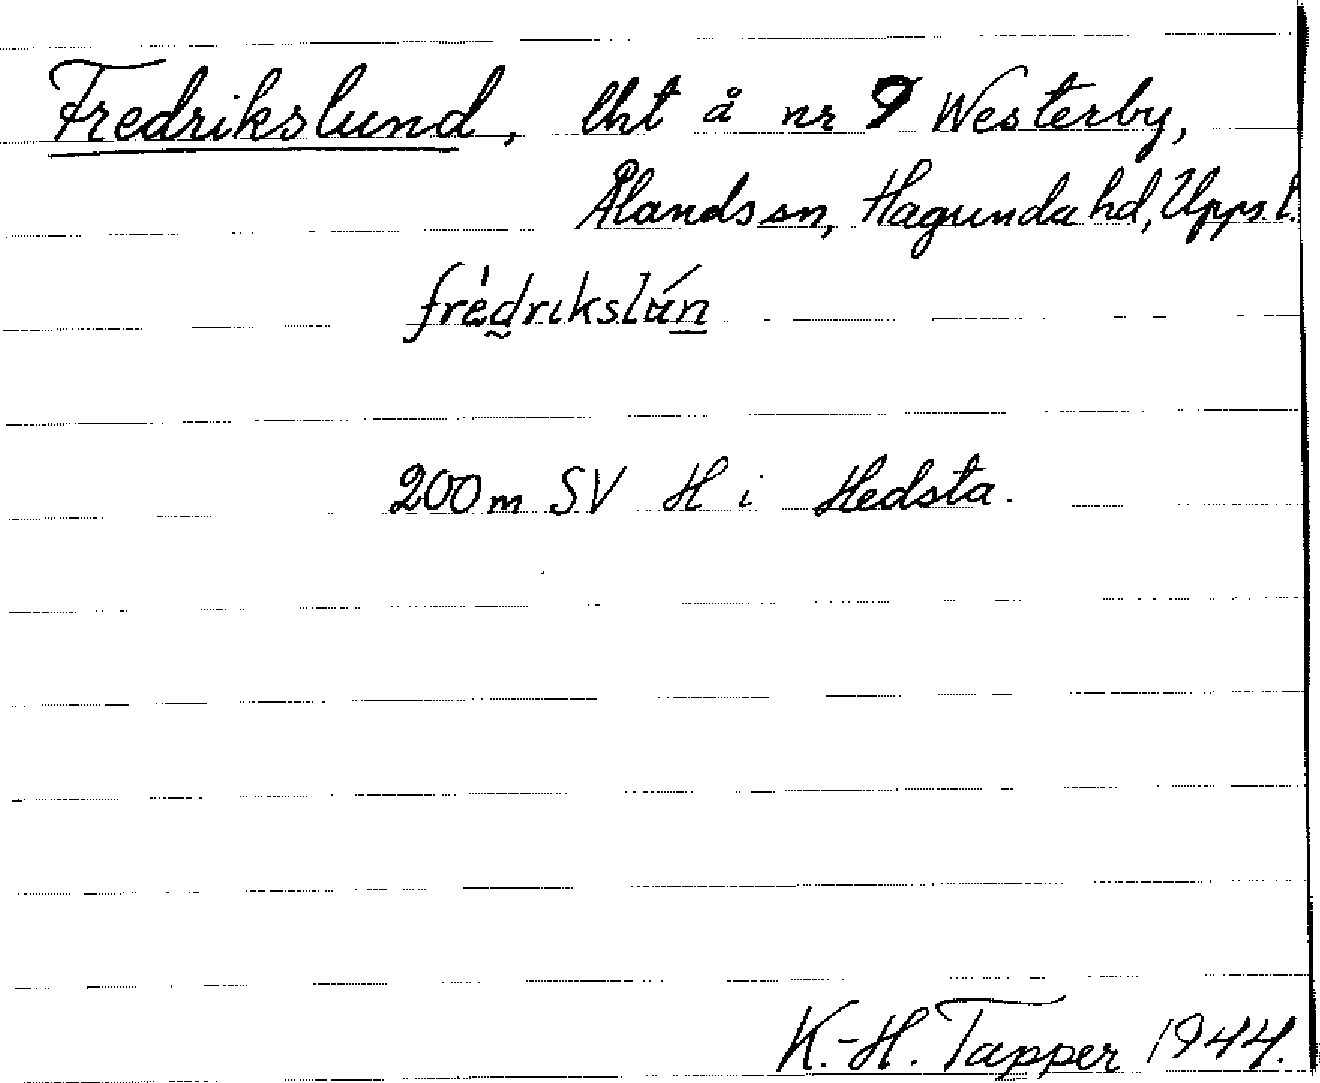 Fredrikslund, lht å nr 9 Westerby,
Ålands sn, Hagunda hd, Upps. l.
fre̍drikslún
200 m SV H i Hedsta.
K.-H. Tapper 1944.